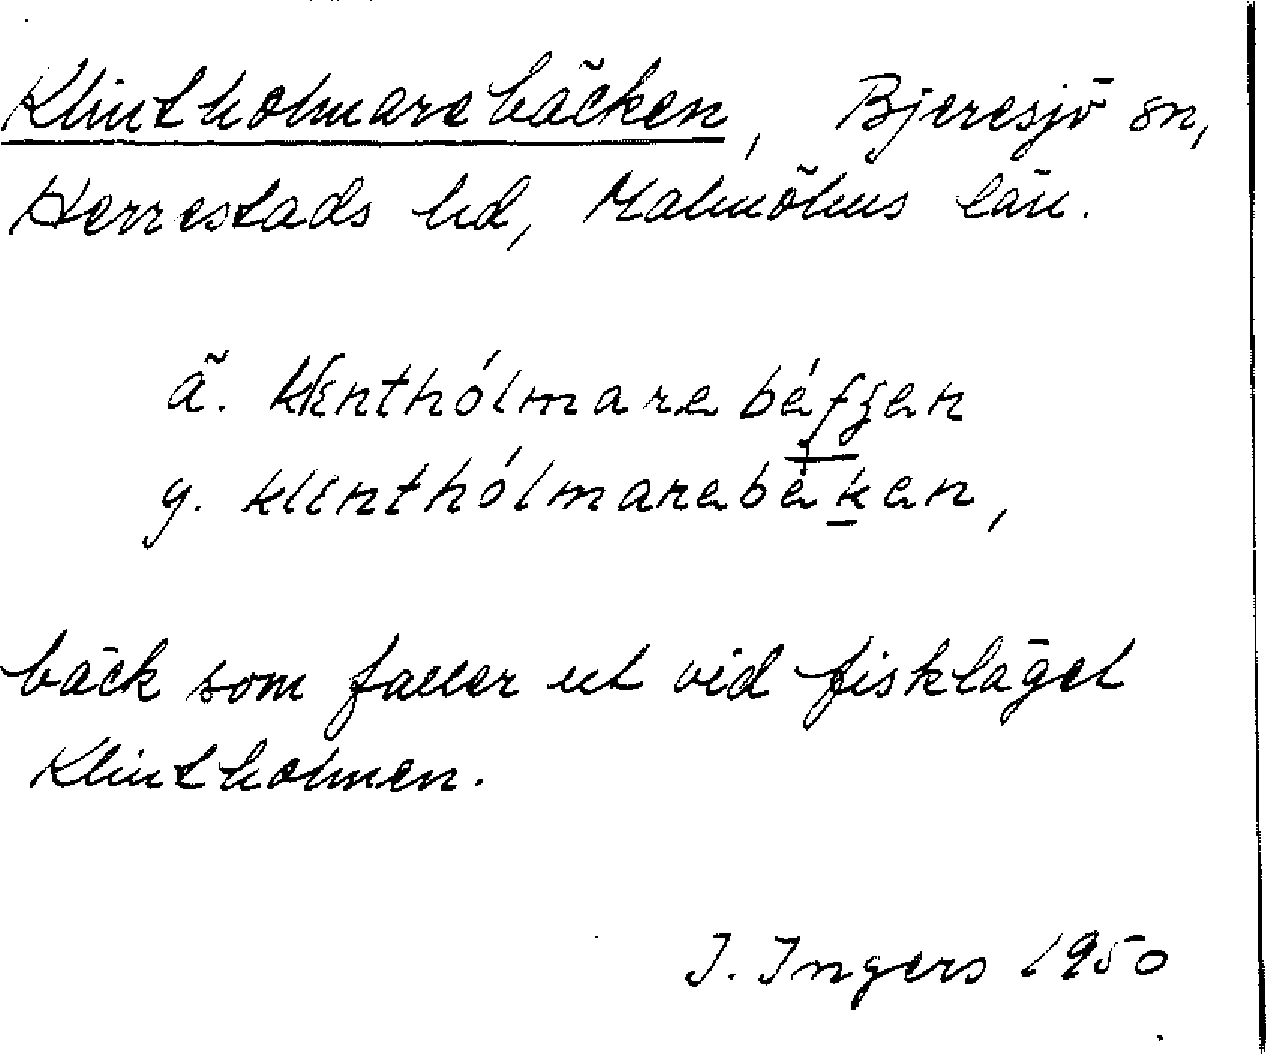 Klintholmarebäcken, Bjeresjö sn,
Herrestads hd, Malmöhus län.
ä. klenthólmarebé
y. klenthólmarebékən,
bäck som faller ut vid fiskläget
Klintholmen.
I. Ingers 1950